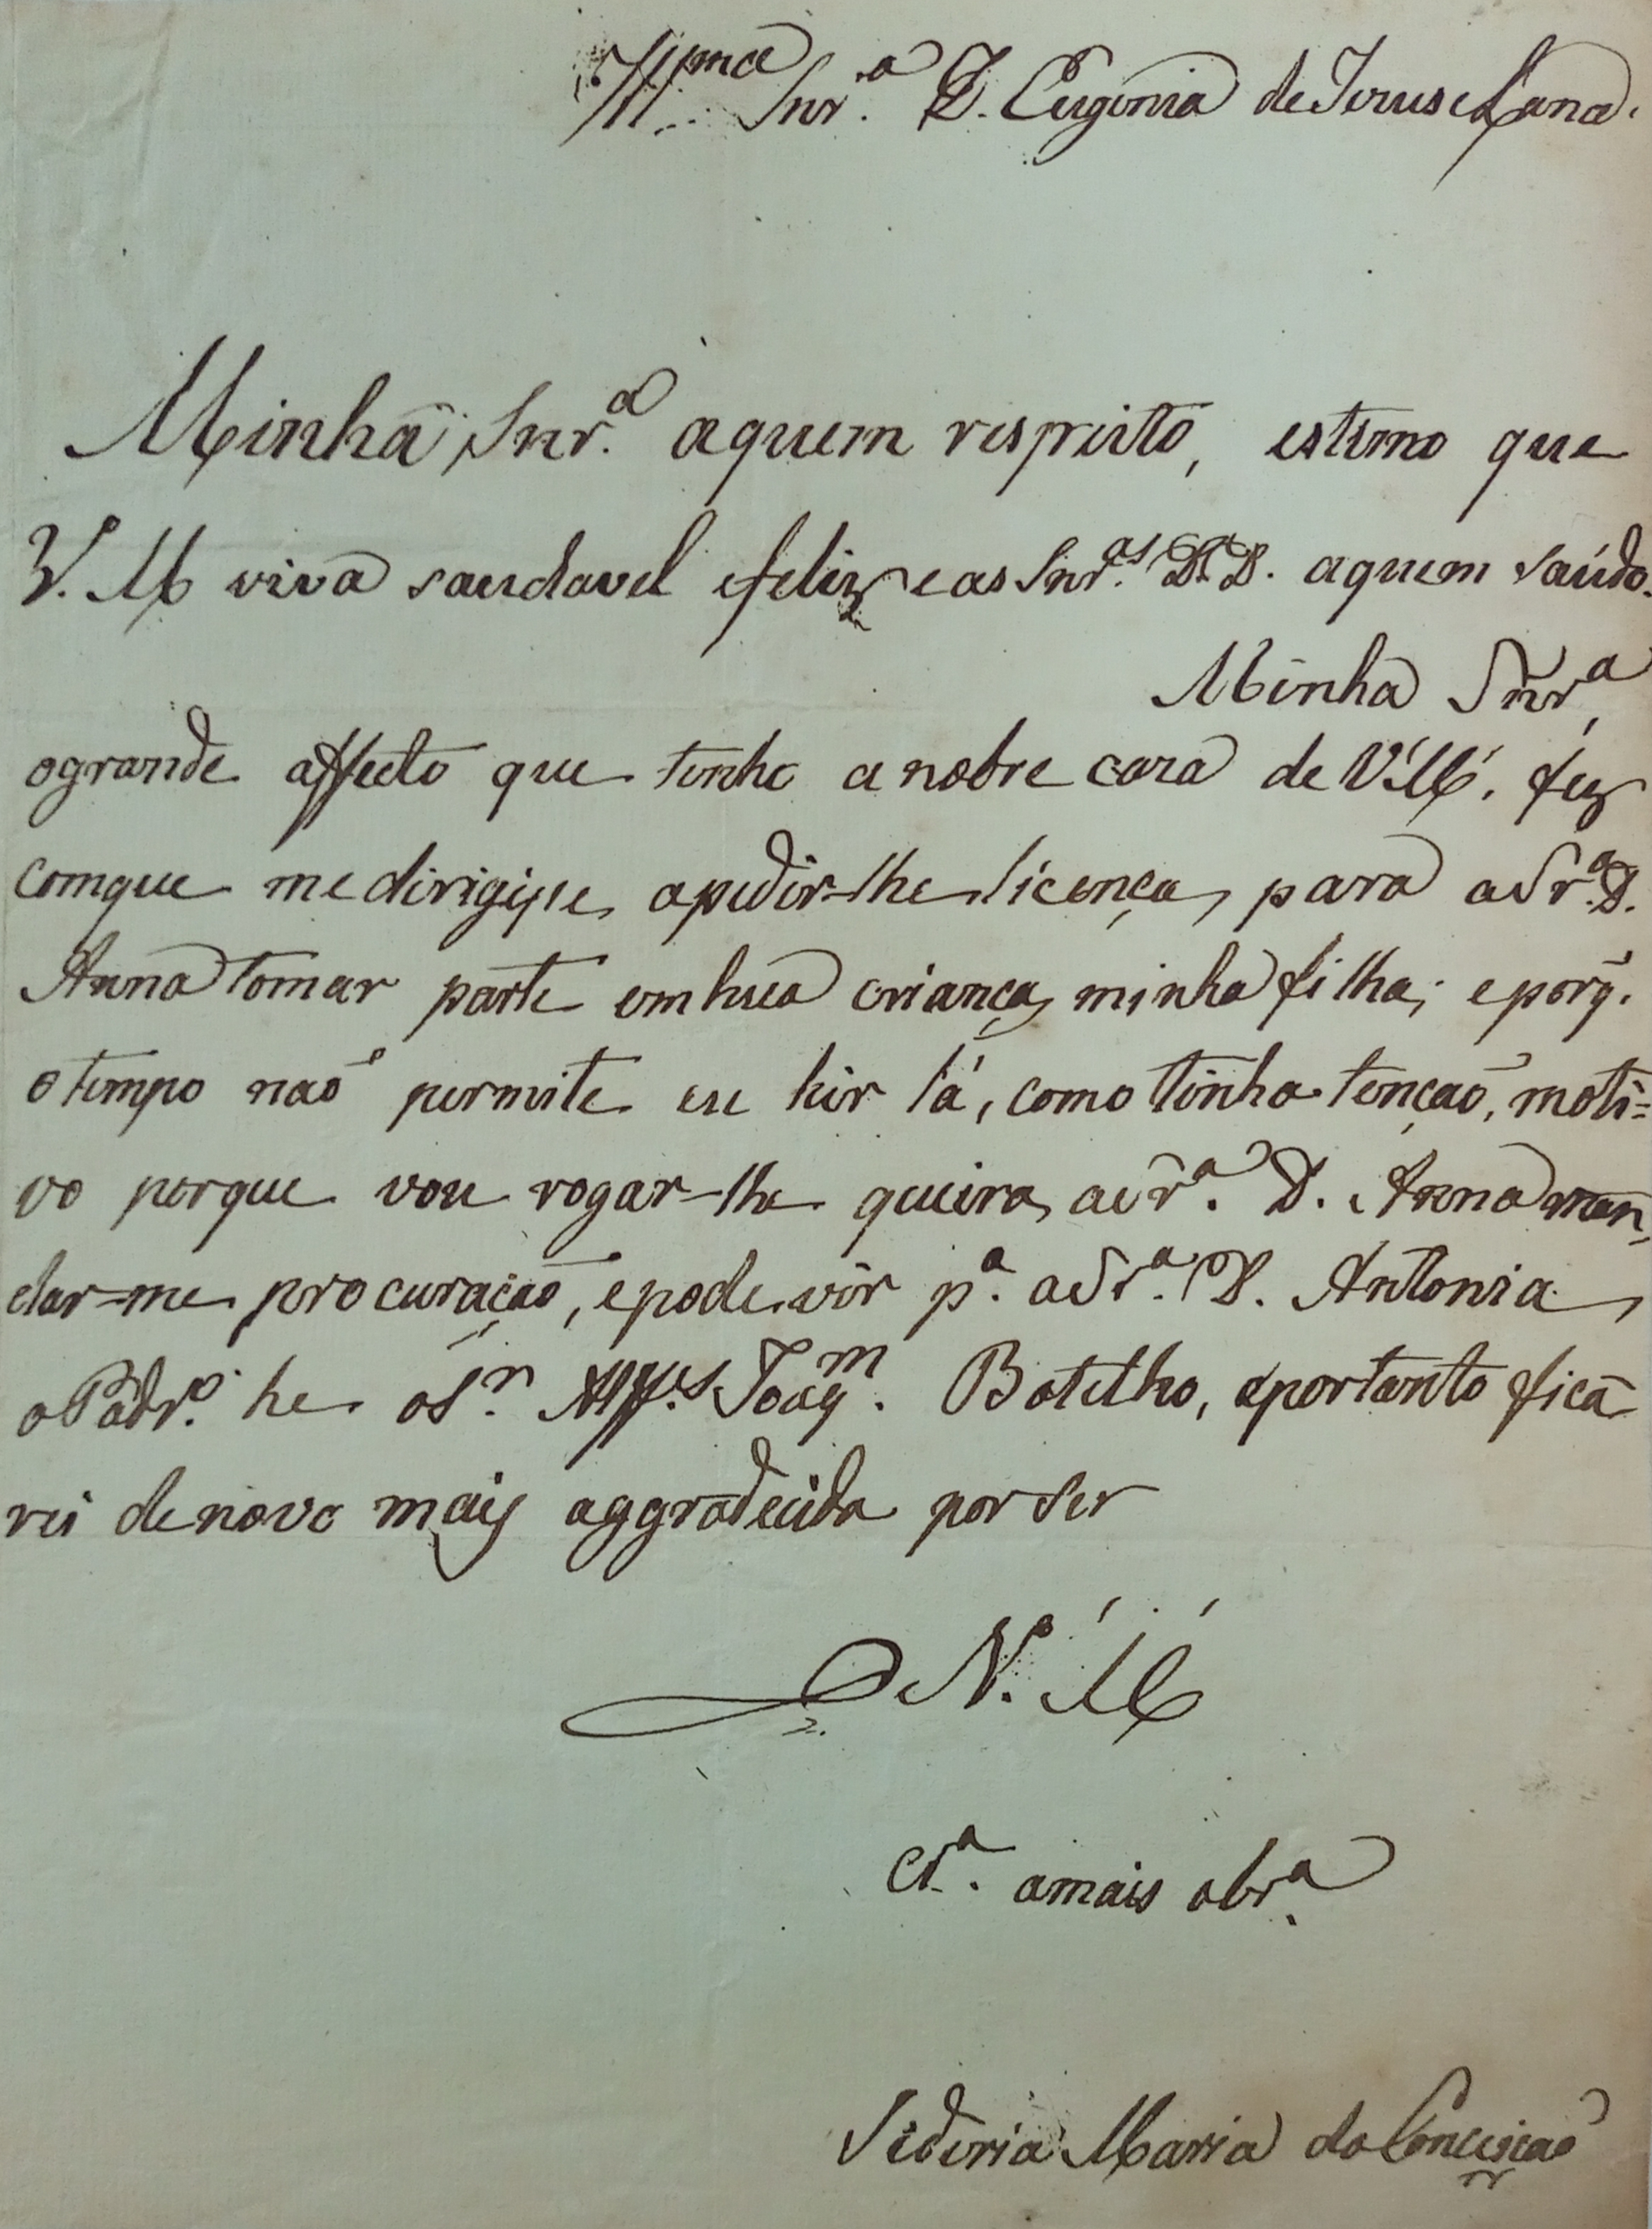 Ill.ma Snr.a D. Eugenia de Jesus Lana.
Minha Snr.a aquem respeito, estimo que
V. M viva saudavel efeliz e as Snr.as D.D. aquem saúdo.
Minha Snr.a
ogrande affecto que tenho anobre caza de V.M. fez
comque medirigisse apedir-lhe licença para aSr.a D.
Anna tomar parte emhua criança minha filha; eporq.
otempo naõ permite eu hir lá, como tinha tençaõ, moti=
vo porque vou rogar-lhe queira aSr.a D. Anna man
dar-me procuraçaõ, epode vir p.a aSr.a D. Antonia
oPadr.o he oSr. Alff.es Joaq.m Botelho, eportanto fica
rei denovo mais aggradecida por ser
De V. M
Cr.a amais obr.a
Maria da Conceiçaõ